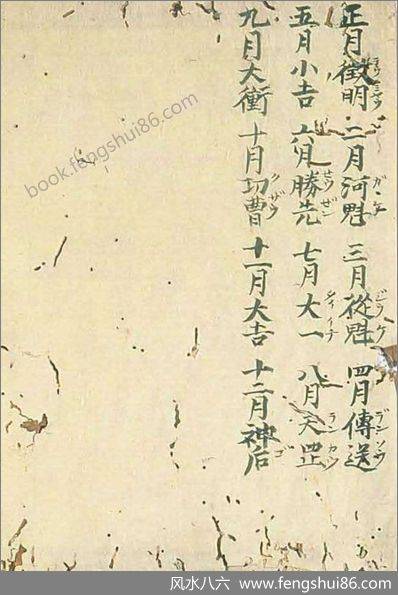 正月徵明 二月河魁 三月從魁 四月傳送
五月小吉 六月勝先 七月大一 八月天罡
九月大衝 十月功曹 十一月大吉 十二月神后
book.fengshui86.com
风水八六 www.fengshui86.com